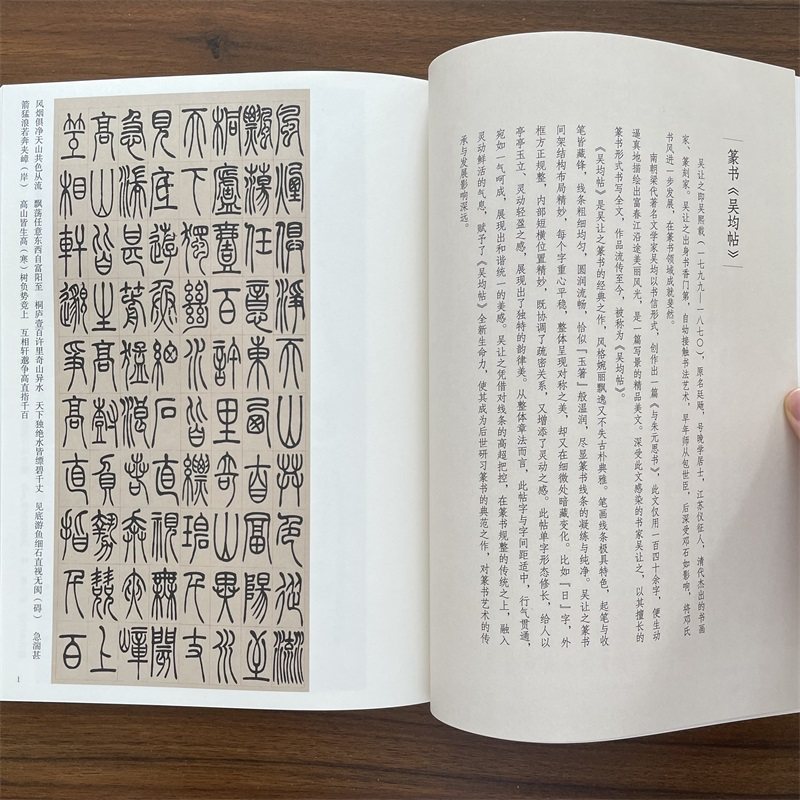 篆书《吴均帖》
吴让之即吴熙载（一七九九—一八七〇），原名廷飏，号晚学居士，江苏仪征人，清代杰出的书画
家、篆刻家。吴让之出身书香门第，自幼接触书法艺术，早年师从包世臣，后深受邓石如影响，将邓氏
书风进一步发展，在篆书领域成就斐然。
南朝梁代著名文学家吴均以书信形式，创作出一篇《与朱元思书》，此文仅用一百四十余字，便生动
逼真地描绘出富春江沿途美丽风光，是一篇写景的精品美文。深受此文感染的书家吴让之，以其擅长的
篆书形式书写全文，作品流传至今，被称为《吴均帖》。
《吴均帖》是吴让之篆书的经典之作，风格婉丽飘逸又不失古朴典雅。笔画线条极具特色，起笔与收
笔皆藏锋，线条粗细均匀，圆润流畅，恰似“玉箸”般温润，尽显篆书线条的凝练与纯净。吴让之篆书
间架结构布局精妙，每个字重心平稳，整体呈现对称之美，却又在细微处暗藏变化。比如“日”字，外
框方正规整，内部短横位置精妙，既协调了疏密关系，又增添了灵动之感。此帖单字形态修长，给人以
亭亭玉立、灵动轻盈之感，展现出了独特的韵律美。从整体章法而言，此帖字与字间距适中，行气贯通，
宛如一气呵成，展现出和谐统一的美感。吴让之凭借对线条的高超把控，在篆书规整的传统之上，融入
灵动鲜活的气息，赋予了《吴均帖》全新生命力，使其成为后世研习篆书的典范之作，对篆书艺术的传
承与发展影响深远。
風煙俱淨天山共色從流
飄蕩任意東西自富陽至
桐廬壹百許里奇山異水
天下獨絕水皆縹碧千丈
見底游魚細石直視無閡
急湍甚箭猛浪若奔夾嶂
高山皆生高樹負勢競上
互相軒邈爭高直指千百
风烟俱净天山共色从流　飘荡任意东西自富阳至　桐庐壹百许里奇山异水　天下独绝水皆缥碧千丈　见底游鱼细石直视无阂（碍）　急湍甚
箭猛浪若奔夹嶂（岸）　高山皆生高（寒）树负势竞上　互相轩邈争高直指千百
1